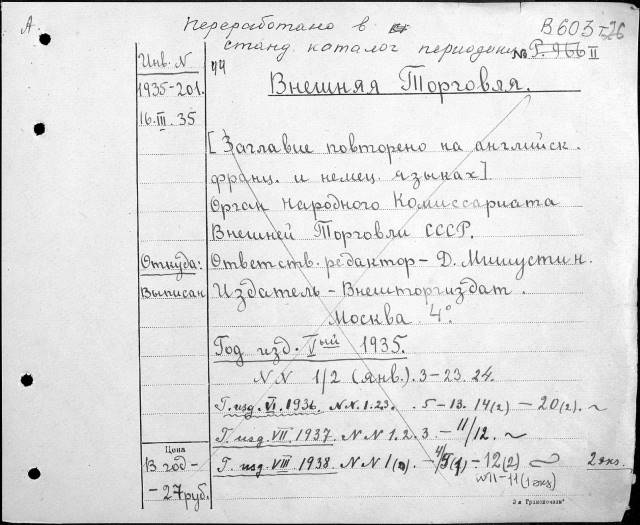 А.
Переработано в
станд каталог периодики
В603 I-26
№ Р. 966 II
Инв. N
1935-201.
16.III.35
Внешняя Торговля.
[Заглавие повторено на английск.
франц. и немец. языках]
Орган Народного Комиссариата
Внешней Торговли СССР.
Откуда: Ответств. редактор - Д. Мишустин.
Выписан Издатель - Внешторгиздат.
Москва 4°.
Год изд. Vый 1935.
NN 1/2 (янв.). 3-23. 24.
Г. изд. VI. 1936. N.N. 1.23. . 5-13. 14(2) - 20(2). ~
Г. изд. VII. 1937. NN 1. 2. 3. - 11/12. ~
Цена
В год - Г. изд. VIII. 1938. NN - 12(2) 2 экз.
- 27 руб. N11-11(1 экз)